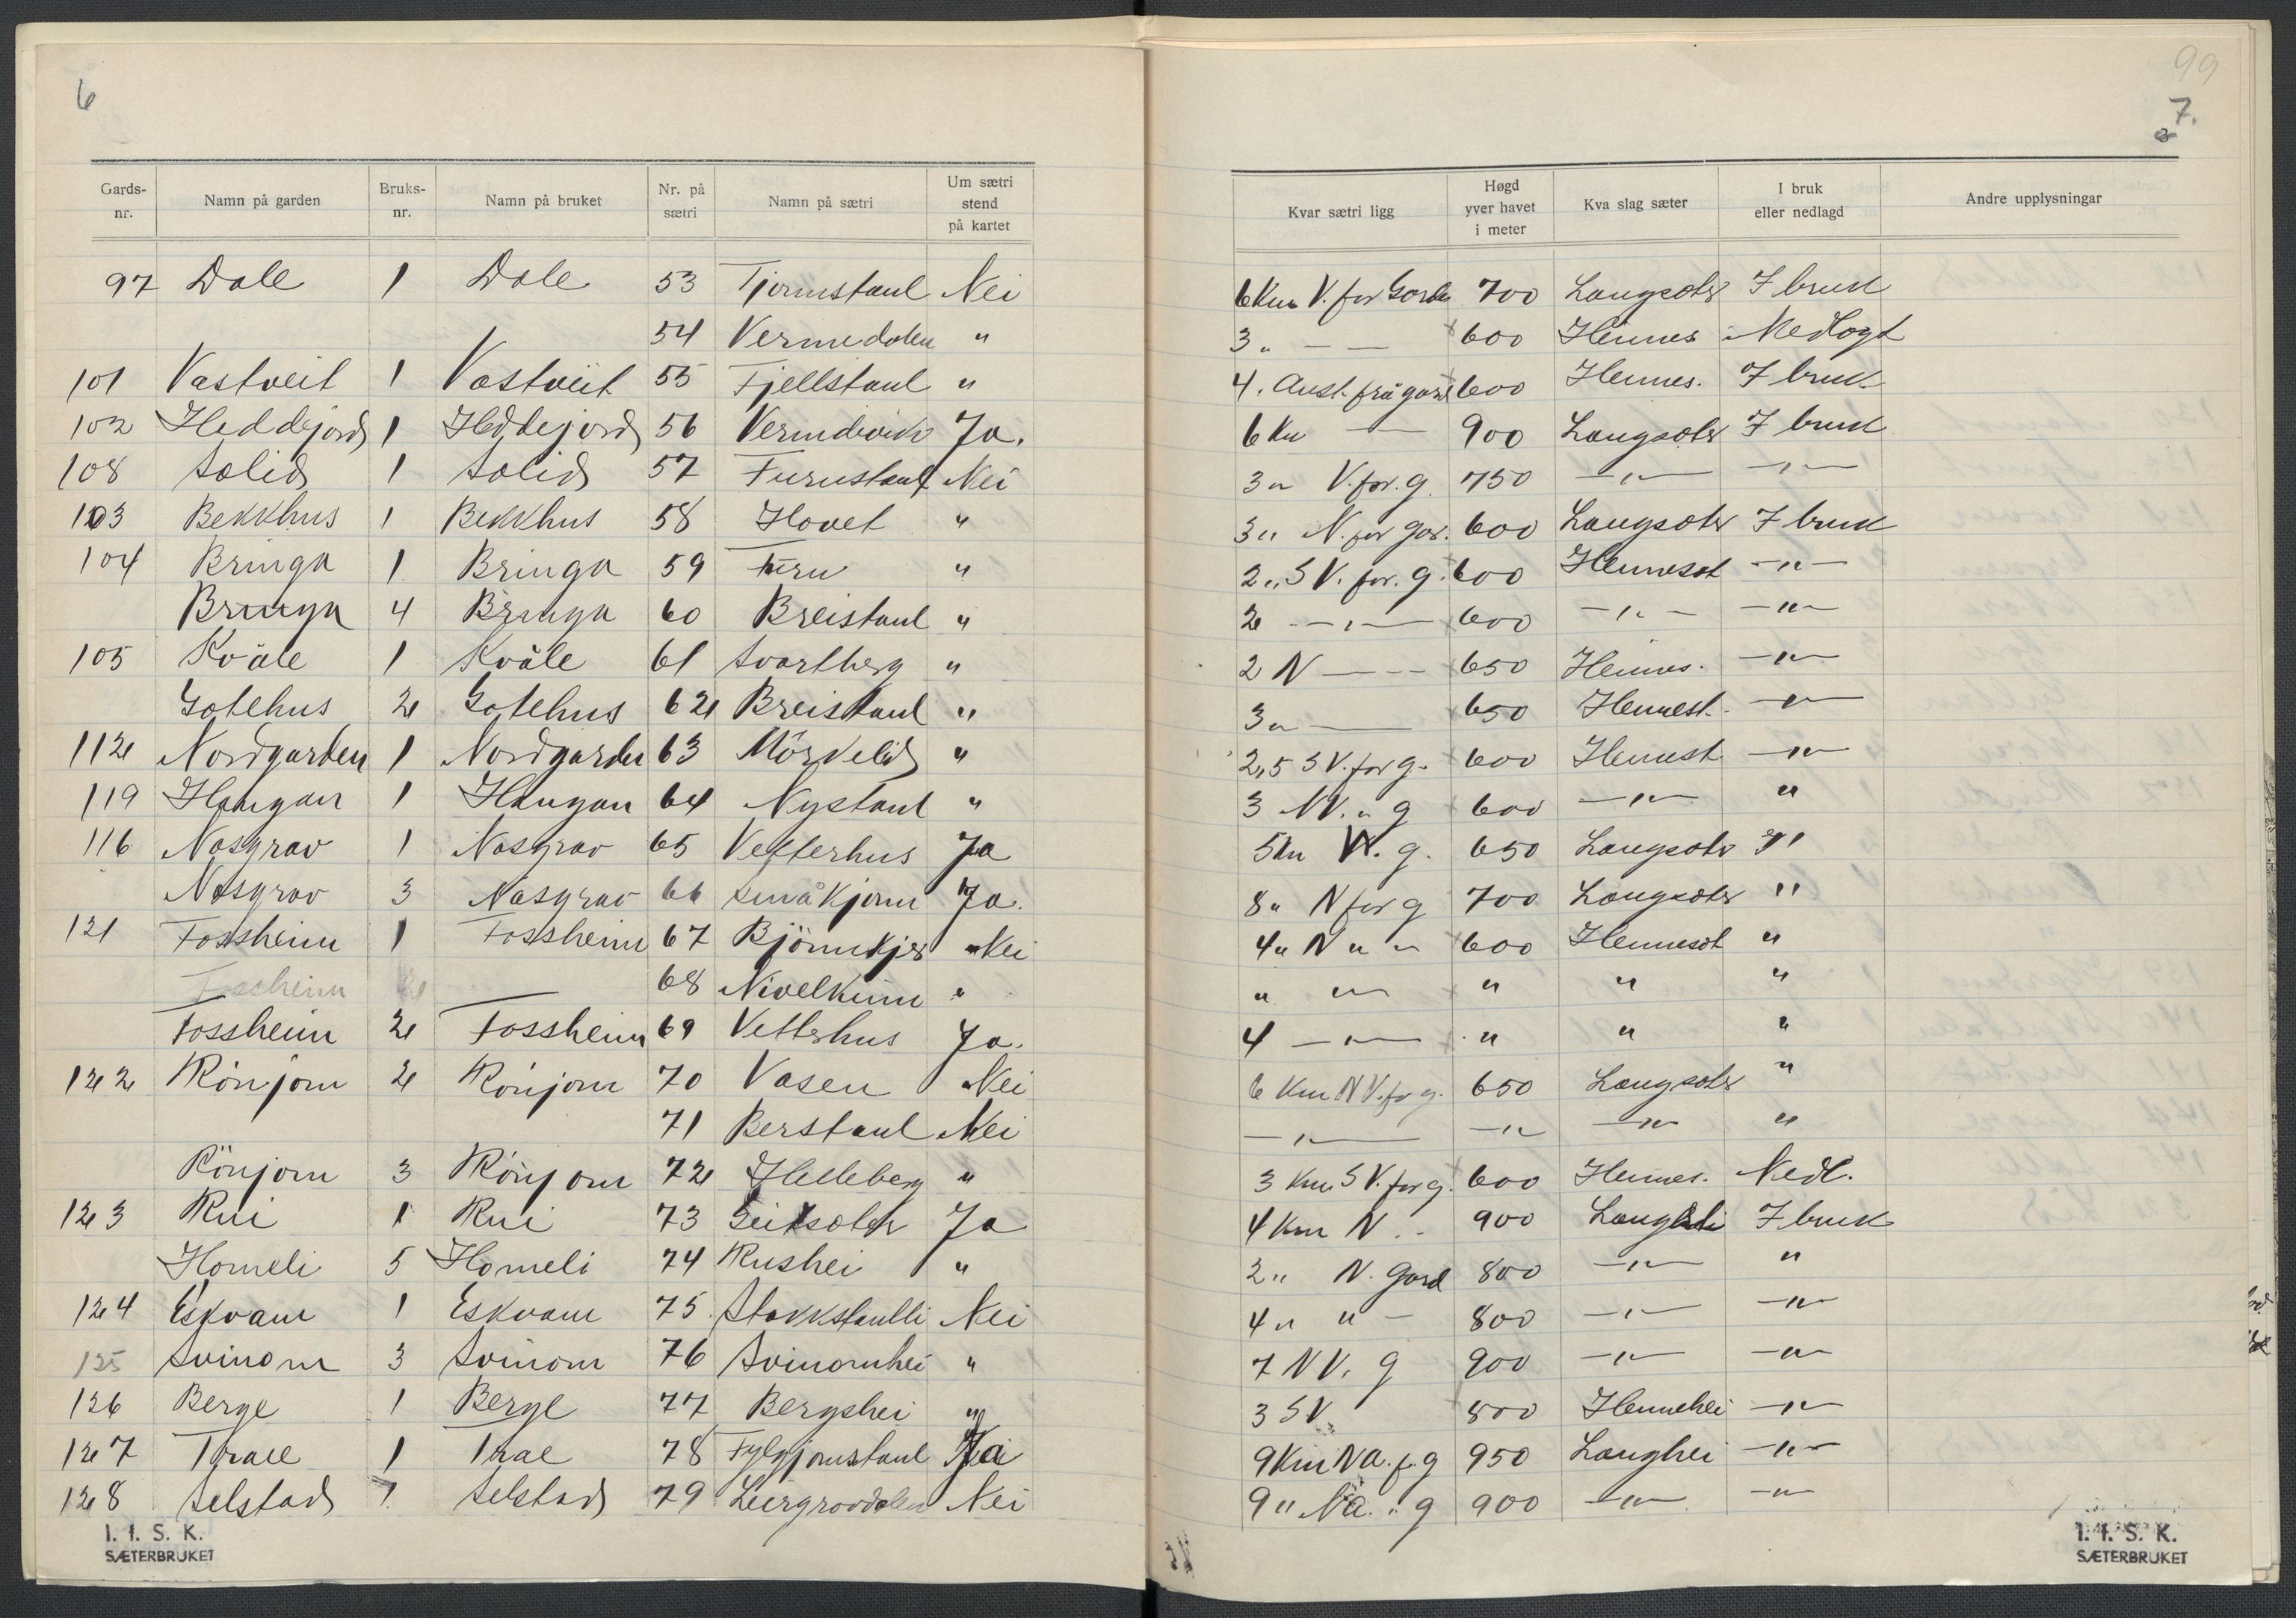 6
Gards-nr. Namn på garden Bruks-nr. Namn på bruket Nr. på sætri Namn på sætri Um sætri stend på kartet
97 Dale 1 Dale 53 Tjørnstaul Nei
54 Vermedalen "
101 Vastveit 1 Vastveit 55 Fjellstaul "
102 Heddejord 1 Heddejord 56 Ja.
108 Solid 1 Solid 57 Furustaul Nei
103 Bekkhus 1 Bekkhus 58 Hovet "
104 Bringa 1 Bringa 59 Furu "
Bringa 4 Bringa 60 Breistaul "
105 Kvåle 1 Kvåle 61 Svartberg "
Gotehus 2 Gotehus 62 Breistaul "
112 Nordgarden 1 Nordgarden 63 Mörkelid "
119 Haugan 1 Haugan 64 Nystaul "
116 Nasgrav 1 Nasgrav 65 Vetterhus Ja
Nasgrav 3 Nasgrav 66 Småkjønn Ja.
121 Fossheim 1 Fossheim 67 Björnekjer Nei
Fossheim 2 68 "
Fossheim 2 Fossheim 69 Vetterhus Ja.
122 Rönjom 2 Rönjom 70 Vasen Nei
71 Berstaul Nei
Rönjom 3 Rönjom 72 Helleberg "
123 Rui 1 Rui 73 Ja
Homeli 5 Homeli 74 Rushei "
124 Eskvam 1 Eskvam 75 Stokkstaulli Nei
125 Svinom 3 Svinom 76 Svinomhei "
126 Berge 1 Berge 77 Bergshei "
127 Traee 1 Trae 78 Ja
128 Selstad 1 Selstad 79 Leirgrovdalen Nei
I. f. S. K.
SÆTERBRUKET
99
7.
Kvar sætri ligg Høgd yver havet i meter Kva slag sæter I bruk eller nedlagd Andre upplysningar
6 Km V. for Garde 700 Langsæter I bruk
3 " — — 600 Heimes Nedlagt
4. Aust. frå gard 600 Heimes. I bruk
6 Km — 900 Langsæter I bruk
3 " V. for. g. 750 —"— —"—
3 " N. for gar. 600 Langsæter I bruk
2 " SV. for. g. 600 Heimesæt —"—
2 —"— 600 —"— —"—
2 N — — 650 Heimes. —"—
3 " — 650 Heimest. —"—
2,5 SV. for g. 600 Heimest —"—
3 NV. " g 600 —"— "
5 Km V. g. 650 Langsæter "
8 " N for g 700 Langsæter "
4 " N " " 600 Heimesæt "
" " " " "
4 —"— " " "
6 Km NV. for g. 650 Langsæter "
—"— —"— —"— "
3 Km SV. for g. 600 Heimes. Nedl.
4 Km N . . 900 I bruk
2 " N. Gard 800 —"— "
4 " " — 800 —"— —"—
7 NV. g 900 —"— —"—
3 SV. 800 Heimehei —"—
9 Km NA. f. g 950 Langhei —"—
9 " NA. " g 900 —"— —"—
I. f. S. K.
SÆTERBRUKET